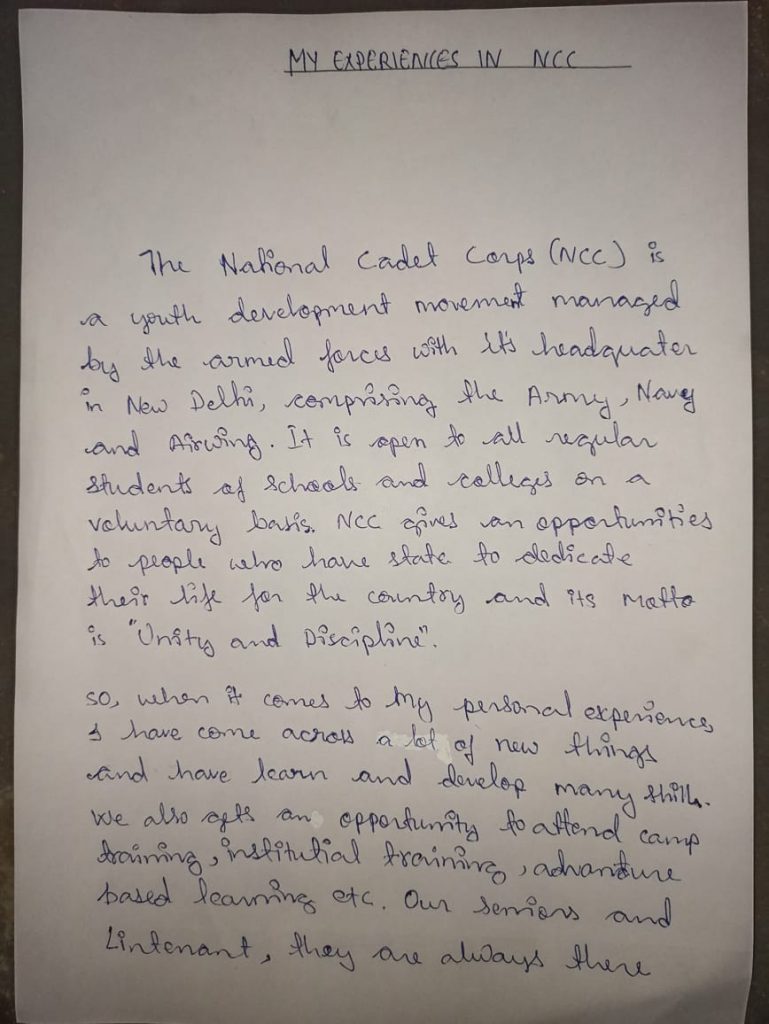 MY EXPERIENCES IN NCC
The National Cadet Corps (NCC) is
a youth development movement managed
by the armed forces with it's headquater
in New Delhi, comprising the Army, Navy
and Airwing. It is open to all regular
students of schools and colleges on a
voluntary basis. NCC gives an opportunities
to people who have state to dedicate
their life for the country and its motto
is "Unity and Discipline".
so, when it comes to My personal experiences
I have come across a lot of new things
and have learn and develop many skills.
We also gets an opportunity to attend camp
training, institutial training, advanture
based learning etc. Our seniors and
Lintenant, they are always there